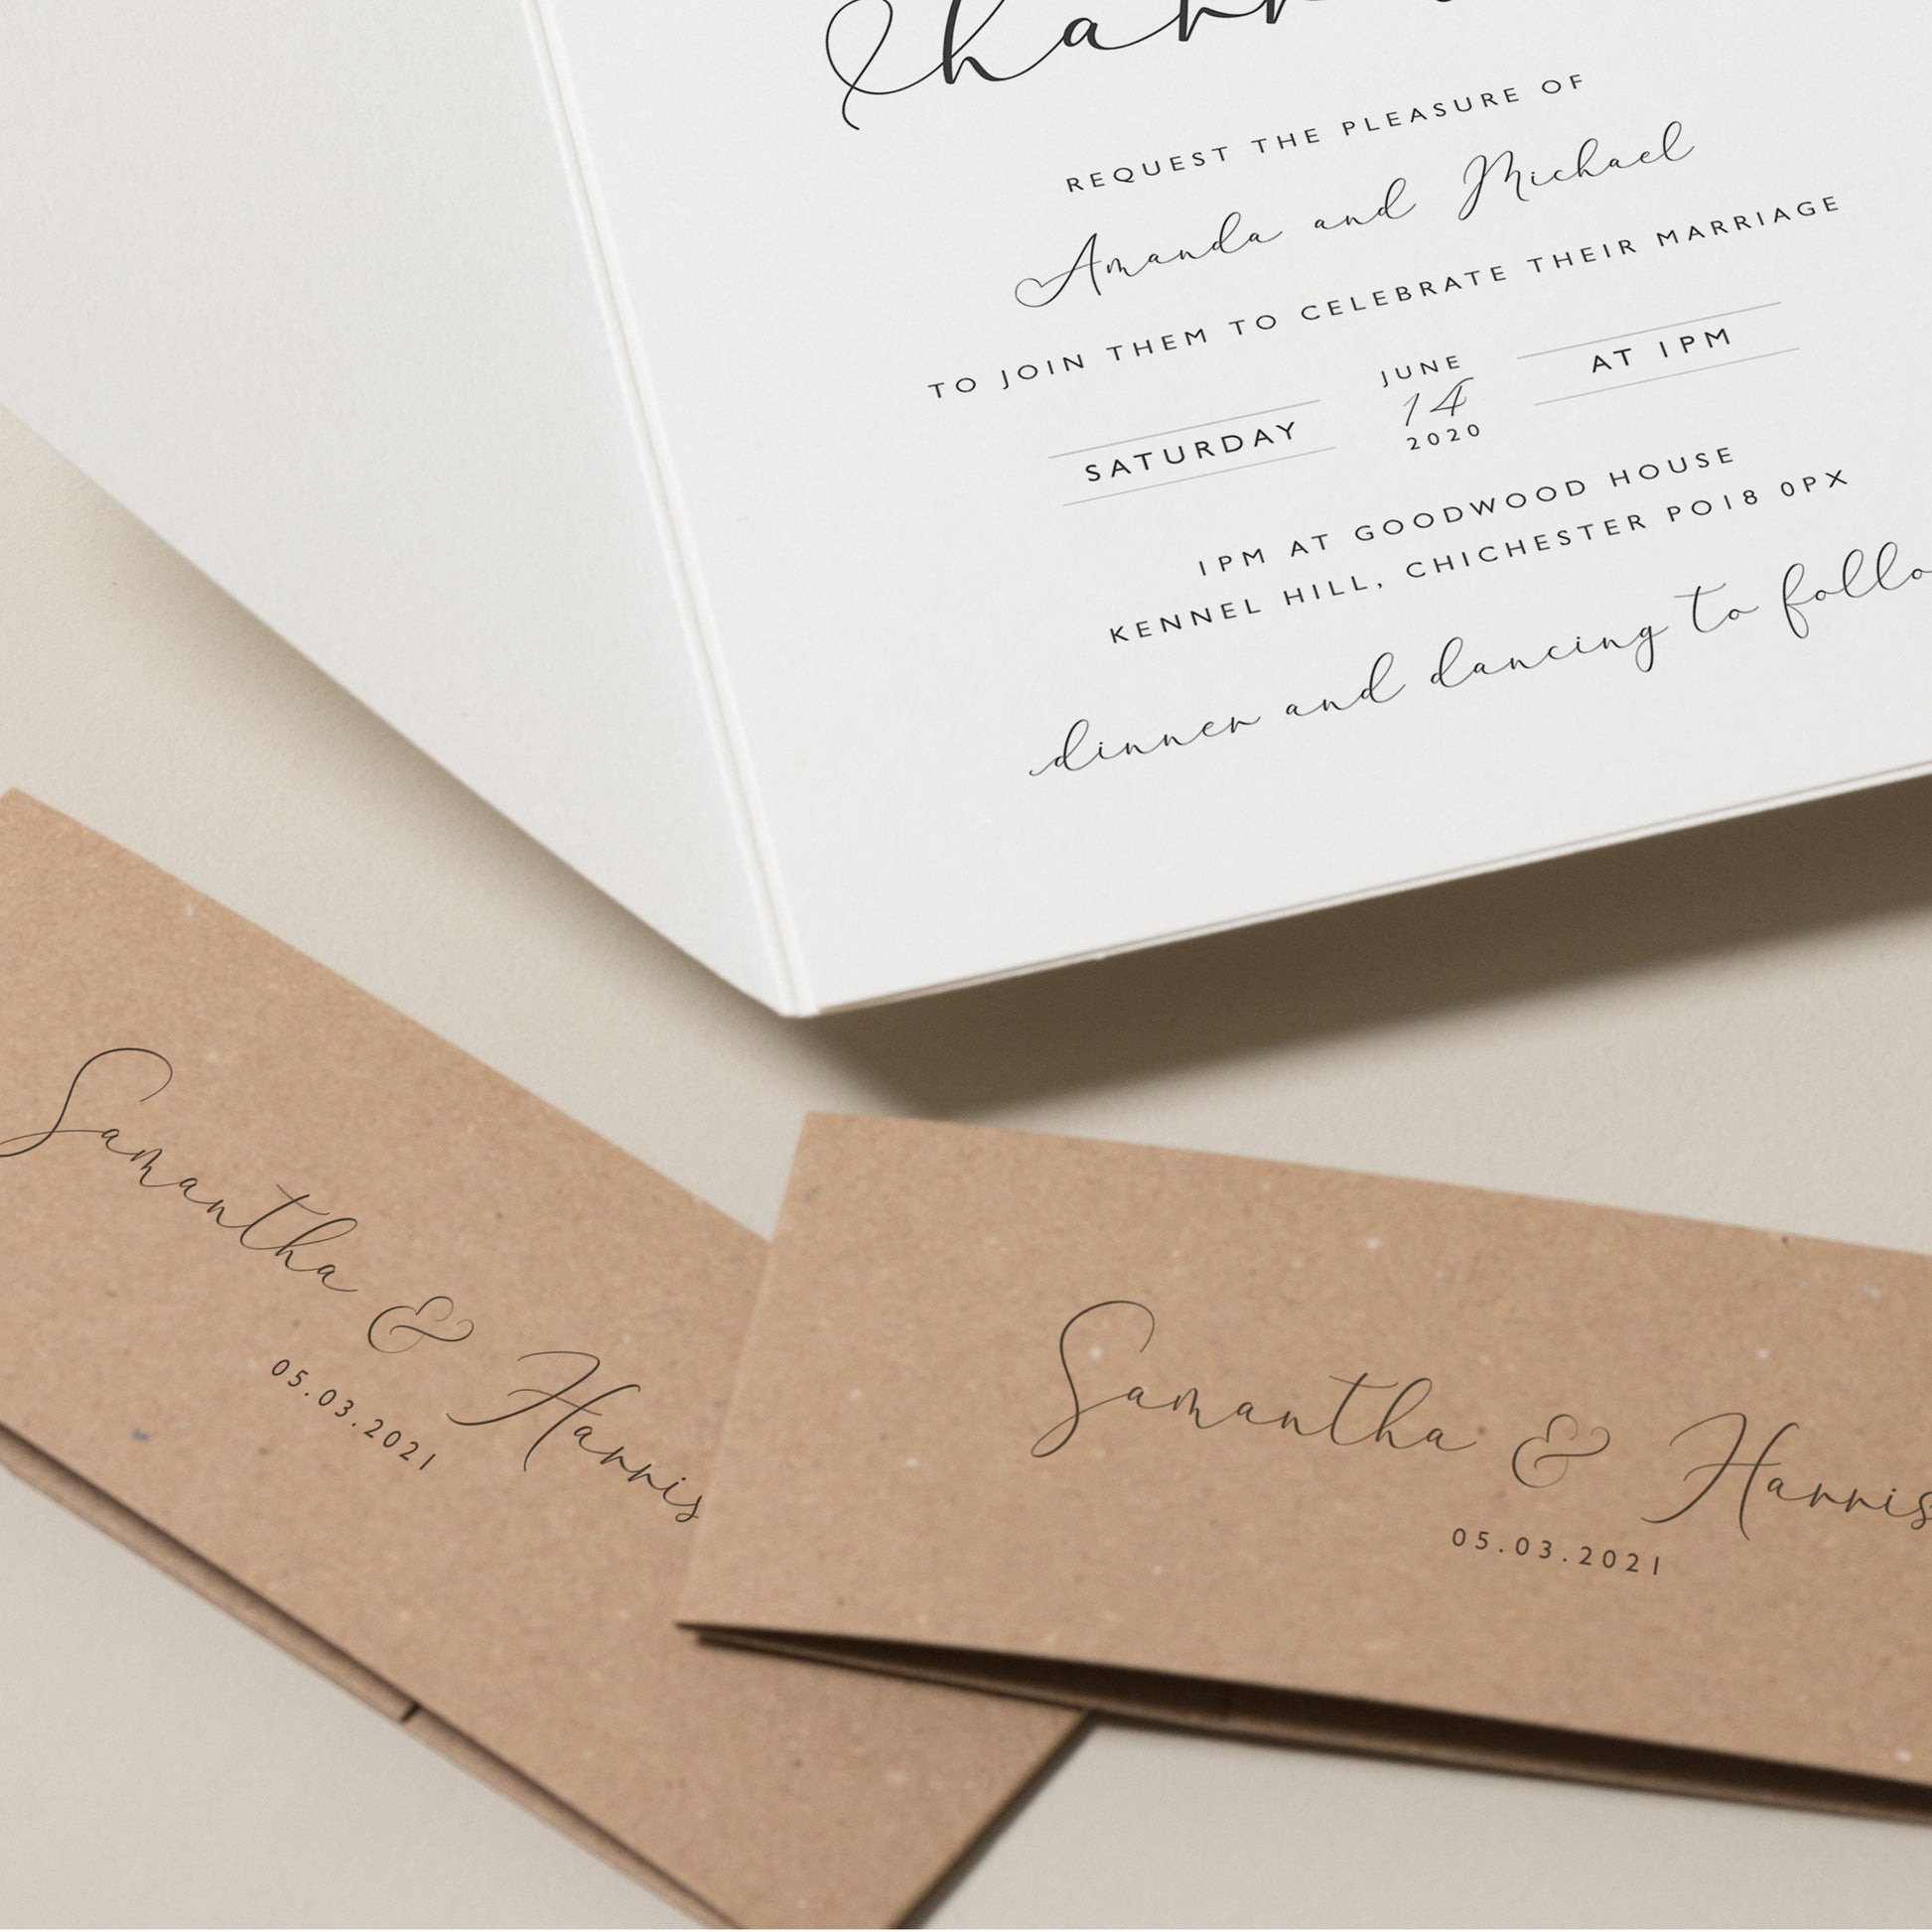 REQUEST THE PLEASURE OF
Amanda and Michael
TO JOIN THEM TO CELEBRATE THEIR MARRIAGE
SATURDAY
JUNE
14
2020
AT 1PM
1PM AT GOODWOOD HOUSE
KENNEL HILL, CHICHESTER PO18 0PX
dinner and dancing to
Samantha & Harris
05.03.2021
Samantha & Harris
05.03.2021